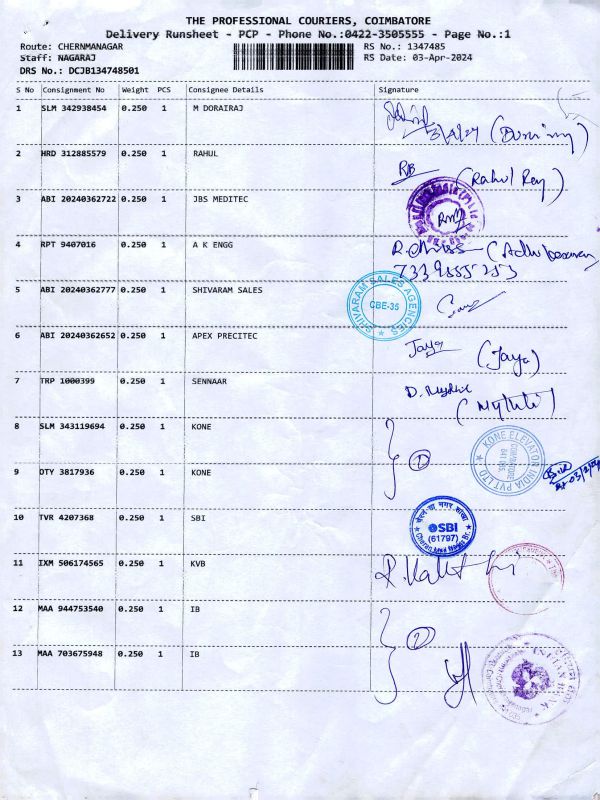 THE PROFESSIONAL COURIERS, COIMBATORE
Delivery Runsheet - PCP - Phone No.:0422-3505555 - Page No.:1
Route: CHERNMANAGAR RS No.: 1347485
Staff: NAGARAJ RS Date: 03-Apr-2024
DRS No.: DCJB134748501
S No Consignment No Weight PCS Consignee Details Signature
1 SLM 342938454 0.250 1 M DORAIRAJ
3/4/24
2 HRD 312885579 0.250 1 RAHUL
RB (Rahul Roy)
3 ABI 20240362722 0.250 1 JBS MEDITEC
4 RPT 9407016 0.250 1 A K ENGG
7339555253
5 ABI 20240362777 0.250 1 SHIVARAM SALES
SHIVARAM SALES AGENCIES
CBE-35
6 ABI 20240362652 0.250 1 APEX PRECITEC
Jaya (Jaya)
7 TRP 1000399 0.250 1 SENNAAR
(Mythili)
8 SLM 343119694 0.250 1 KONE
KONE ELEVATOR INDIA PVT LTD
COIMBATORE
641 035
9 DTY 3817936 0.250 1 KONE
10 TVR 4207368 0.250 1 SBI
SBI
(61797)
11 IXM 506174565 0.250 1 KVB
12 MAA 944753540 0.250 1 IB
2
13 MAA 703675948 0.250 1 IB
INDIAN BANK